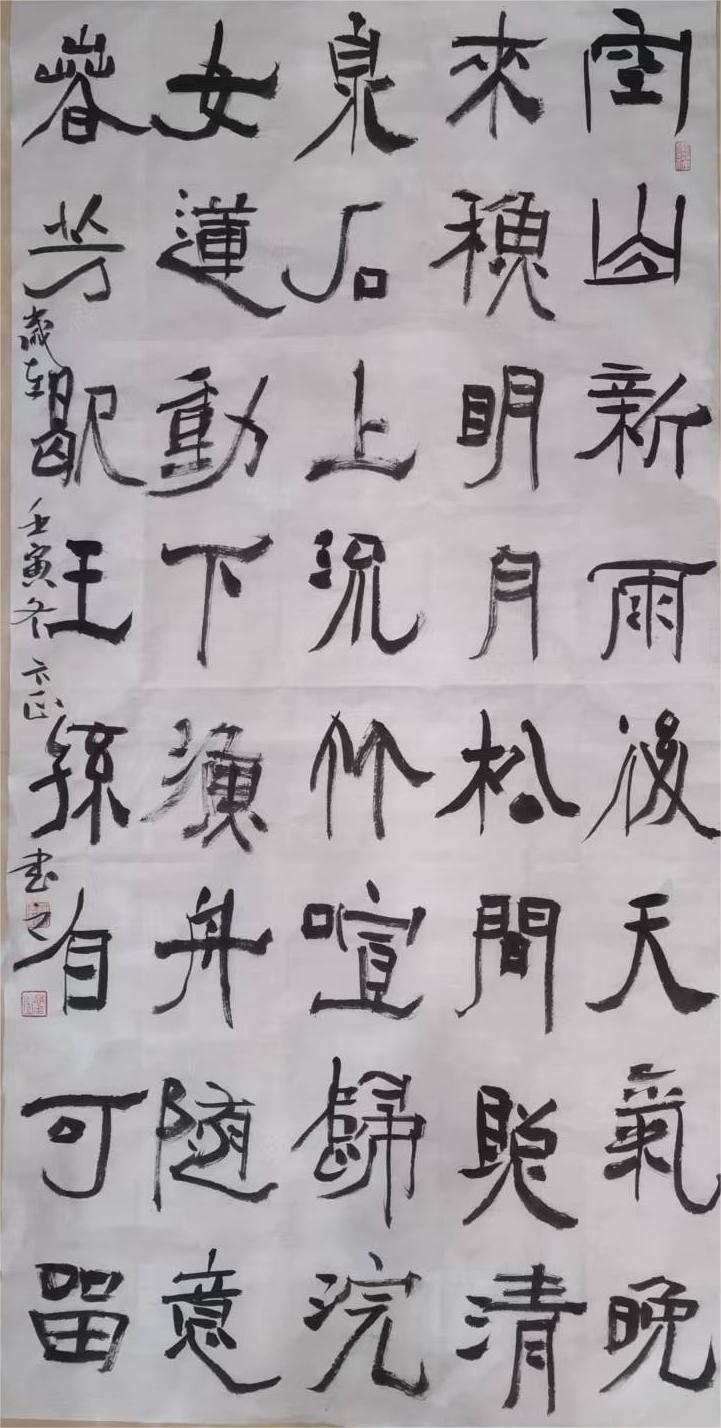 空山新雨後天氣晚
來穐明月松間照清
泉石上流竹喧歸浣
女蓮動下漁舟隨意
春芳歇王孫自可留
歲在壬寅冬書